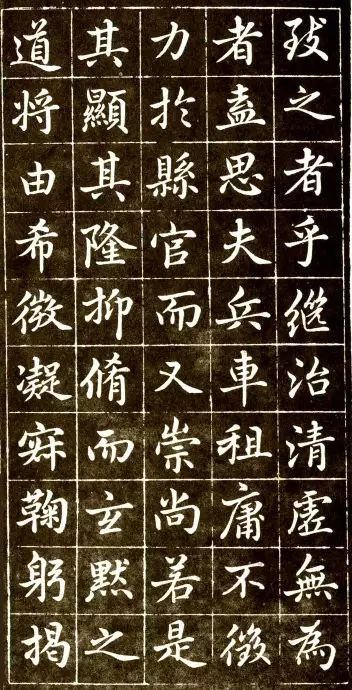 致之者乎継治清虚無為
者盍思夫兵車租庸不徵
力於縣官而又崇尚若是
其顯其隆抑脩而玄默之
道将由希微凝寂鞠躬揭